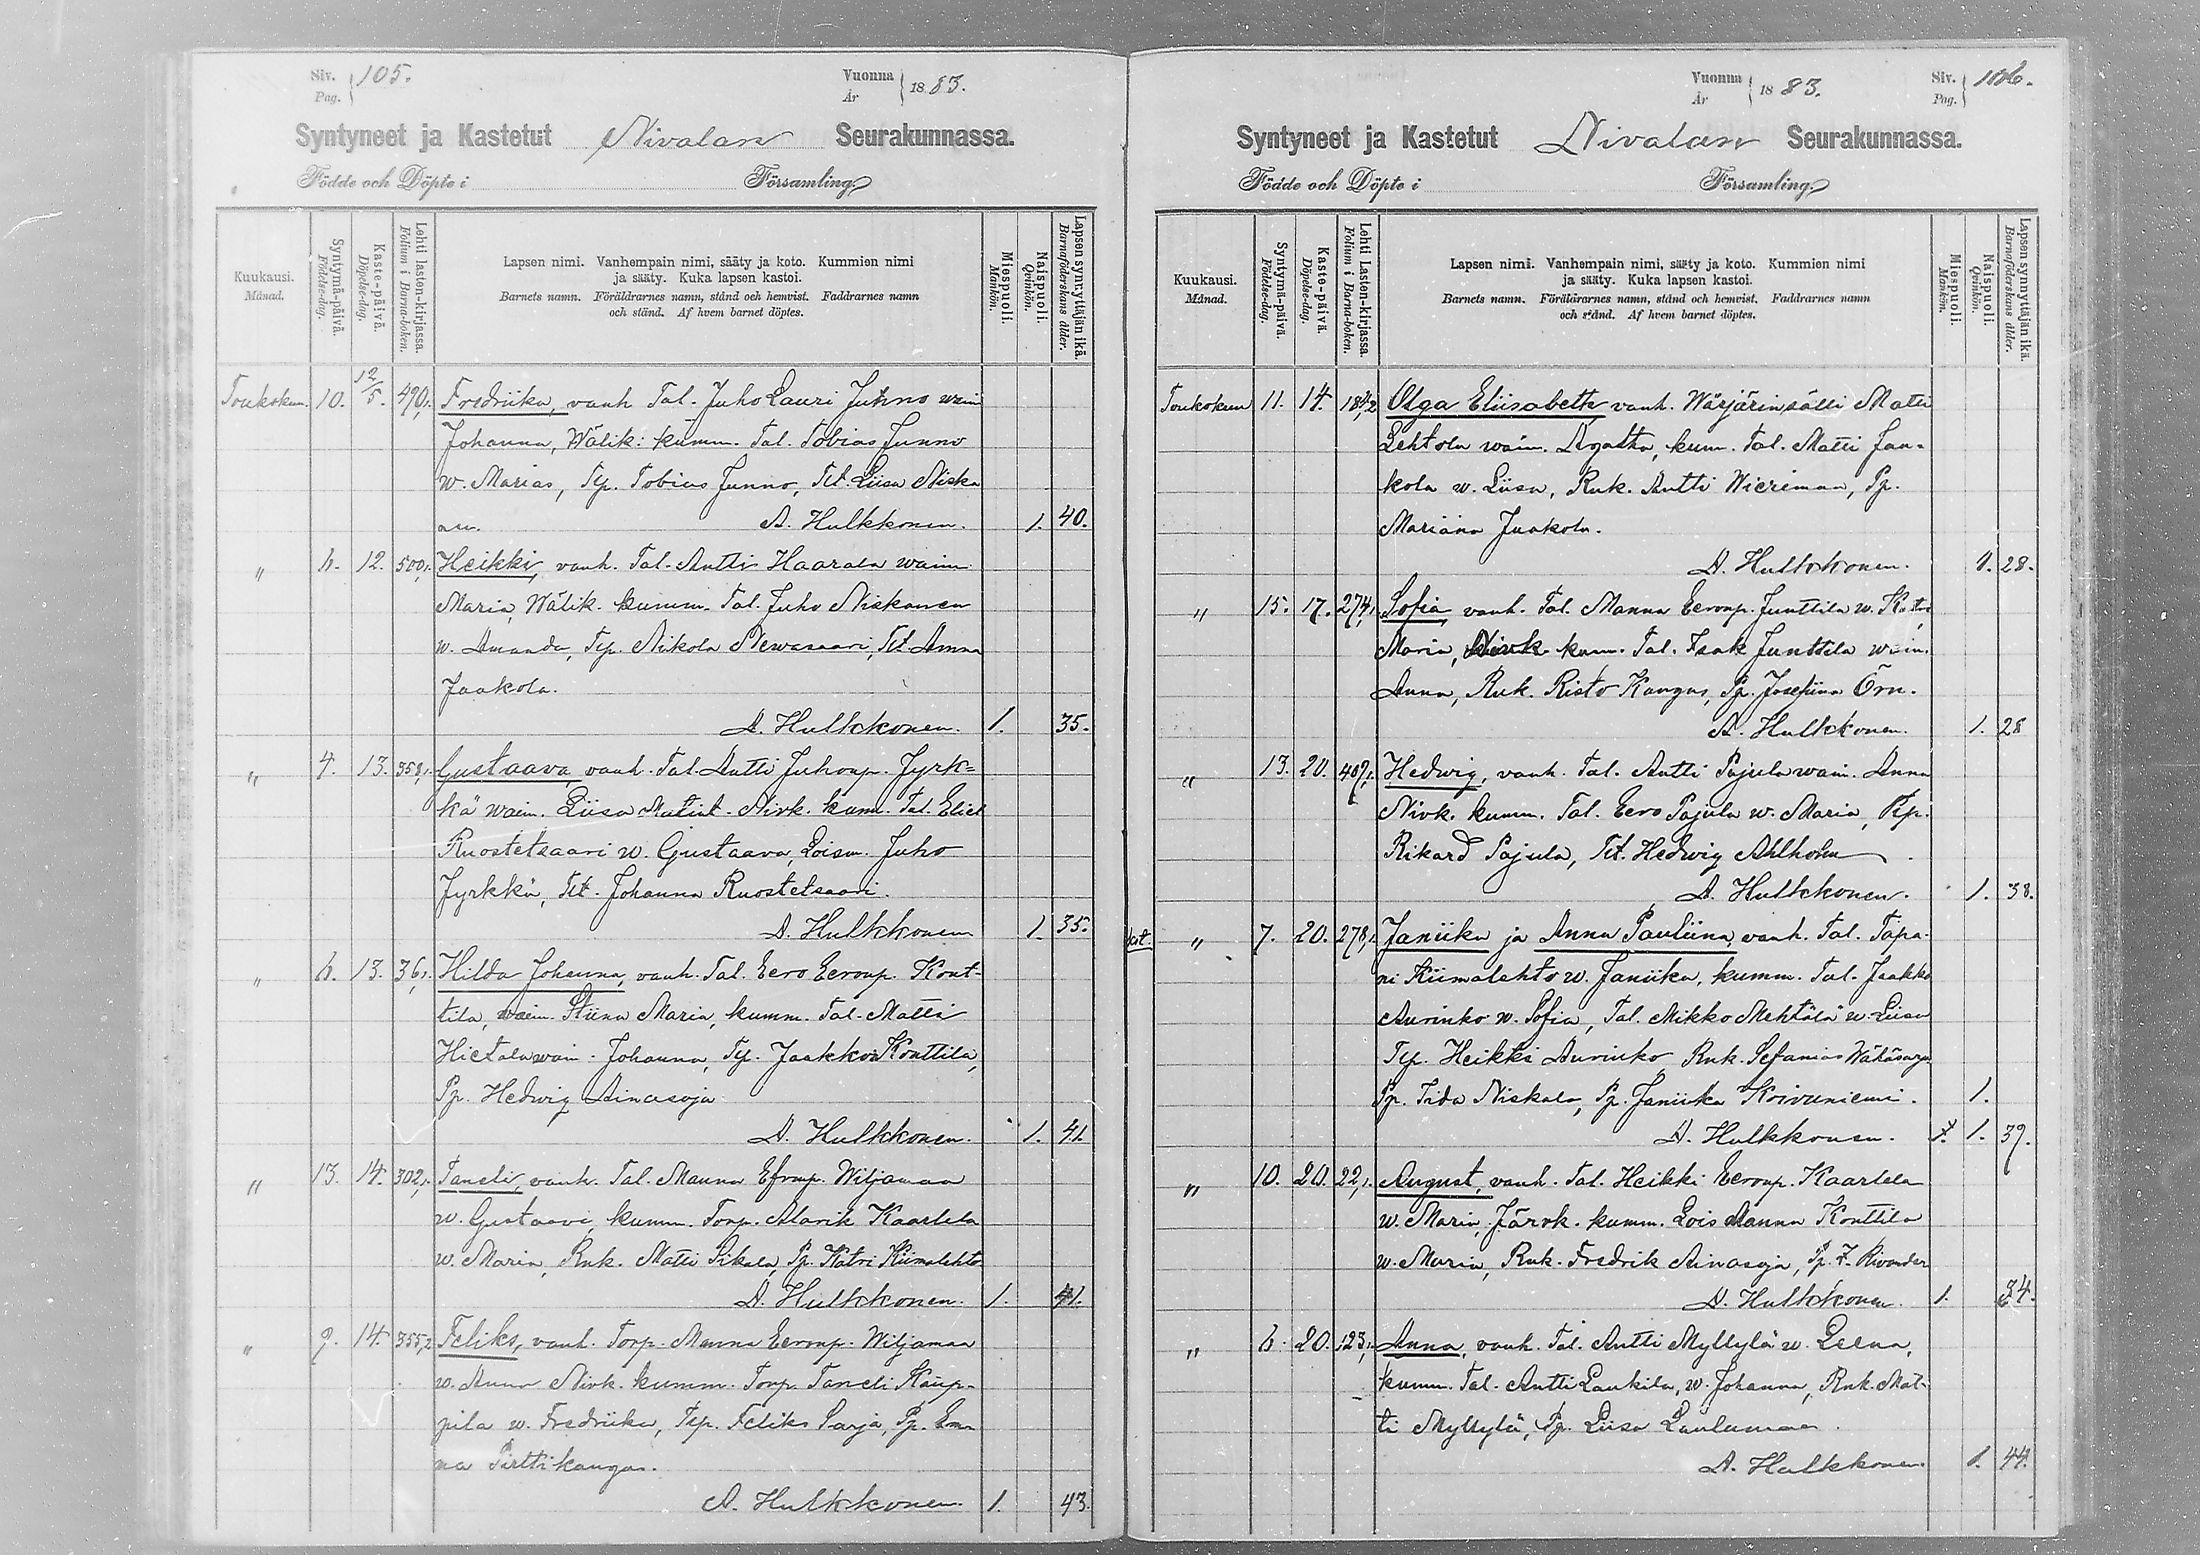 Siv. 105. Vuonna 1883.
Pag. År
Syntyneet ja Kastetut Nivalan Seurakunnassa.
Födde och Döpte i Församling
Kuukausi. Månad.
Syntymä-päivä. Födelse-dag.
Kaste-päivä. Döpelse-dag.
Lehti lasten-kirjassa. Folium i Barna-boken.
Lapsen nimi. Vanhempain nimi, sääty ja koto. Kummien nimi
ja sääty. Kuka lapsen kastoi.
Barnets namn. Föräldrarnes namn, stånd och hemvist. Faddrarnes namn
och stånd. Af hvem barnet döptes.
Miespuoli. Mankön.
Naispuoli. Qvinkön.
Lapsen synnyttäjän ikä. Barnaföderskans ålder.
Toukokuu. 10. 12/5. 490,1. Fredriika, vanh. Tal. Juho Lauri Junno waim
Johanna, Wälik: kumm. Tal. Tobias Junno
w. Marias, Tp. Tobias Junno, Tlt. Liisa Niska
nen. A. Hulkkonen. 1. 40.
" 6. 12. 500,1. Heikki, vanh. Tal. Antti Haarala waim
Maria, Wälik. kumm. Tal. Juho Niskanen
w. Amanda, Tp. Nikola Newasaari, Tlt. Anna
Jaakola.
A. Hulkkonen. 1. 35.
" 4. 13. 358,1. Gustaava, vanh. Tal. Antti Juhonp. Jyrk=
kä waim. Liisa Matint. Nivk. kumm. Tal. Eliel
Ruostetsaari w. Gustaava, Loism. Juho
Jyrkkä, Tlt. Johanna Ruostetsaari.
A. Hulkkonen 1. 35.
" 6. 13. 36,1. Hilda Johanna, vanh. Tal. Eero Eeronp. Kont-
tila, waim. Stiina Maria, kumm. Tal. Matti
Hietala waim. Johanna, Tp. Jaakko Konttila,
Pp. Hedwig Ainasoja
A. Hulkkonen. 1. 41.
" 13. 14. 302,1. Taneli, vanh. Tal. Manna Efrap. Wiljamaa
w. Gustaava, kumm. Torp. Alarik Kaartela
w. Maria, Rnk. Matti Pikala, Pp. Katri Kiimalehto
A. Hulkkonen. 1. 41.
" 9. 14. 355,2 Feliks, vanh. Torp. Manna Eeronp. Wiljamaa
w. Anna Nivk. kumm. Torp. Taneli Kaup-
pila w. Fredriika, Tsp. Feliks Sarja, Pp. Em
ma Pirttikangas.
A. Hulkkonen. 1. 43.
Vuonna 1883. Siv. 106.
År Pag.
Syntyneet ja Kastetut Nivalan Seurakunnassa.
Födde och Döpte i Församling
Kuukausi. Månad.
Syntymä-päivä. Födelse-dag.
Kaste-päivä. Döpelse-dag.
Lehti lasten-kirjassa. Folium i Barna-boken.
Lapsen nimi. Vanhempain nimi, sääty ja koto. Kummien nimi
ja sääty. Kuka lapsen kastoi.
Barnets namn. Föräldrarnes namn, stånd och hemvist. Faddrarnes namn
och stånd. Af hvem barnet döptes.
Miespuoli. Mankön.
Naispuoli. Qvinkön.
Lapsen synnyttäjän ikä. Barnaföderskans ålder.
Toukokuu 11. 14. 184,2 Olga Eliisabeth vanh. Wärjärinsälli Matti
Lehtola waim. Agatha, kum. Tal. Matti Jaa-
kola w. Liisa, Rnk. Antti Wieriman, Pp.
Mariana Jaakola.
A. Hulkkonen. 1. 28.
" 15. 17. 274,1. Sofia, vanh. Tal. Manna Eeronp. Junttila w.
Maria, Nivk. kum. Tal. Isak Junttila waim.
Anna, Rnk. Risto Kangas, Pp. Josefiina Örn.
A. Hulkkonen. 1. 28
" 13. 20. 409,1. Hedwig, vanh. Tal. Antti Pajula waim. Anna
Nivk. kumm. Tal. Eero Pajula w. Maria, Tsp.
Rikard Pajula, Tlt. Hedwig Ahlholm.
A. Hulkkonen. 1. 38.
kat. " 7. 20. 278,1. Janiika ja Anna Pauliina, vanh. Tal. Tapa-
ni Kiimalehto w. Janiika, kumm. Tal. Jaakko
Aurinko w. Sofia, Tal. Mikko Mehtälä w. Liisa
Tp. Heikki Aurinko, Rnk. Sefanias Wähäsarja
Pp. Iida Niskala, Pp. Janiika Koivuniemi. 1.
A. Hulkkonen. 1. 1. 39.
" 10. 20. 22,1. August, vanh. Tal. Heikki Eeronp. Kaartela
w. Maria, Järvk. kumm. Lois Manna Konttila
w. Maria, Rnk. Fredrik Ainasoja, Pp.
A. Hulkkonen. 1. 34.
" 6. 20. 123,1. Anna, vanh. Tal. Antti Myllylä w. Leena,
kumm. Tal. Antti Laukila, w. Johanna, Rnk. Mat-
ti Myllylä, Pp. Liisa Laulumaa.
A. Hulkkonen. 1. 44.